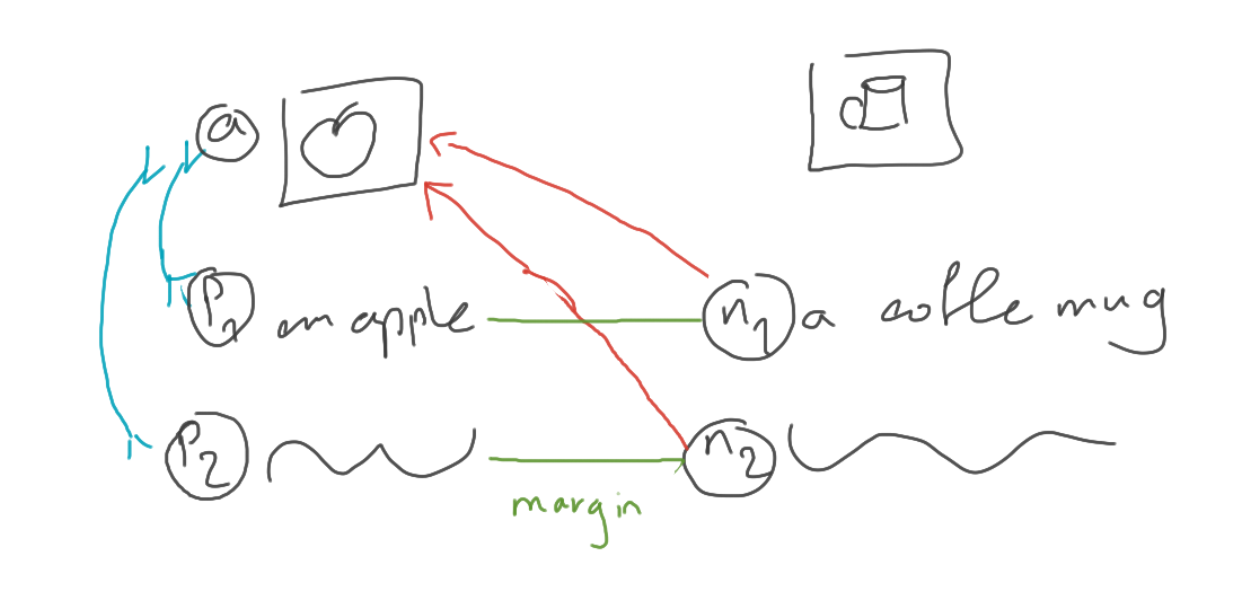 a
P1 an apple n1 a coffe mug
P2 n2
margin